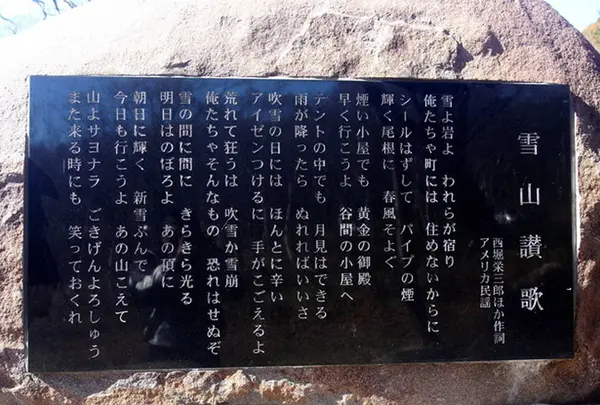 雪山讃歌
西堀栄三郎ほか作詞
アメリカ民謡
雪よ岩よ　われらが宿り
俺たちゃ町には　住めないからに
シールはずして　パイプの煙
輝く尾根に　春風そよぐ
煙い小屋でも　黄金の御殿
早く行こうよ　谷間の小屋へ
テントの中でも　月見はできる
雨が降ったら　ぬれればいいさ
吹雪の日には　ほんとに辛い
アイゼンつけるに　手がこごえるよ
荒れて狂うは　吹雪か雪崩
俺たちゃそんなもの　恐れはせぬぞ
雪の間に間に　きらきら光る
明日はのぼろよ　あの頂に
朝日に輝く　新雪ふんで
今日も行こうよ　あの山こえて
山よサヨナラ　ごきげんよろしゅう
また来る時にも　笑っておくれ